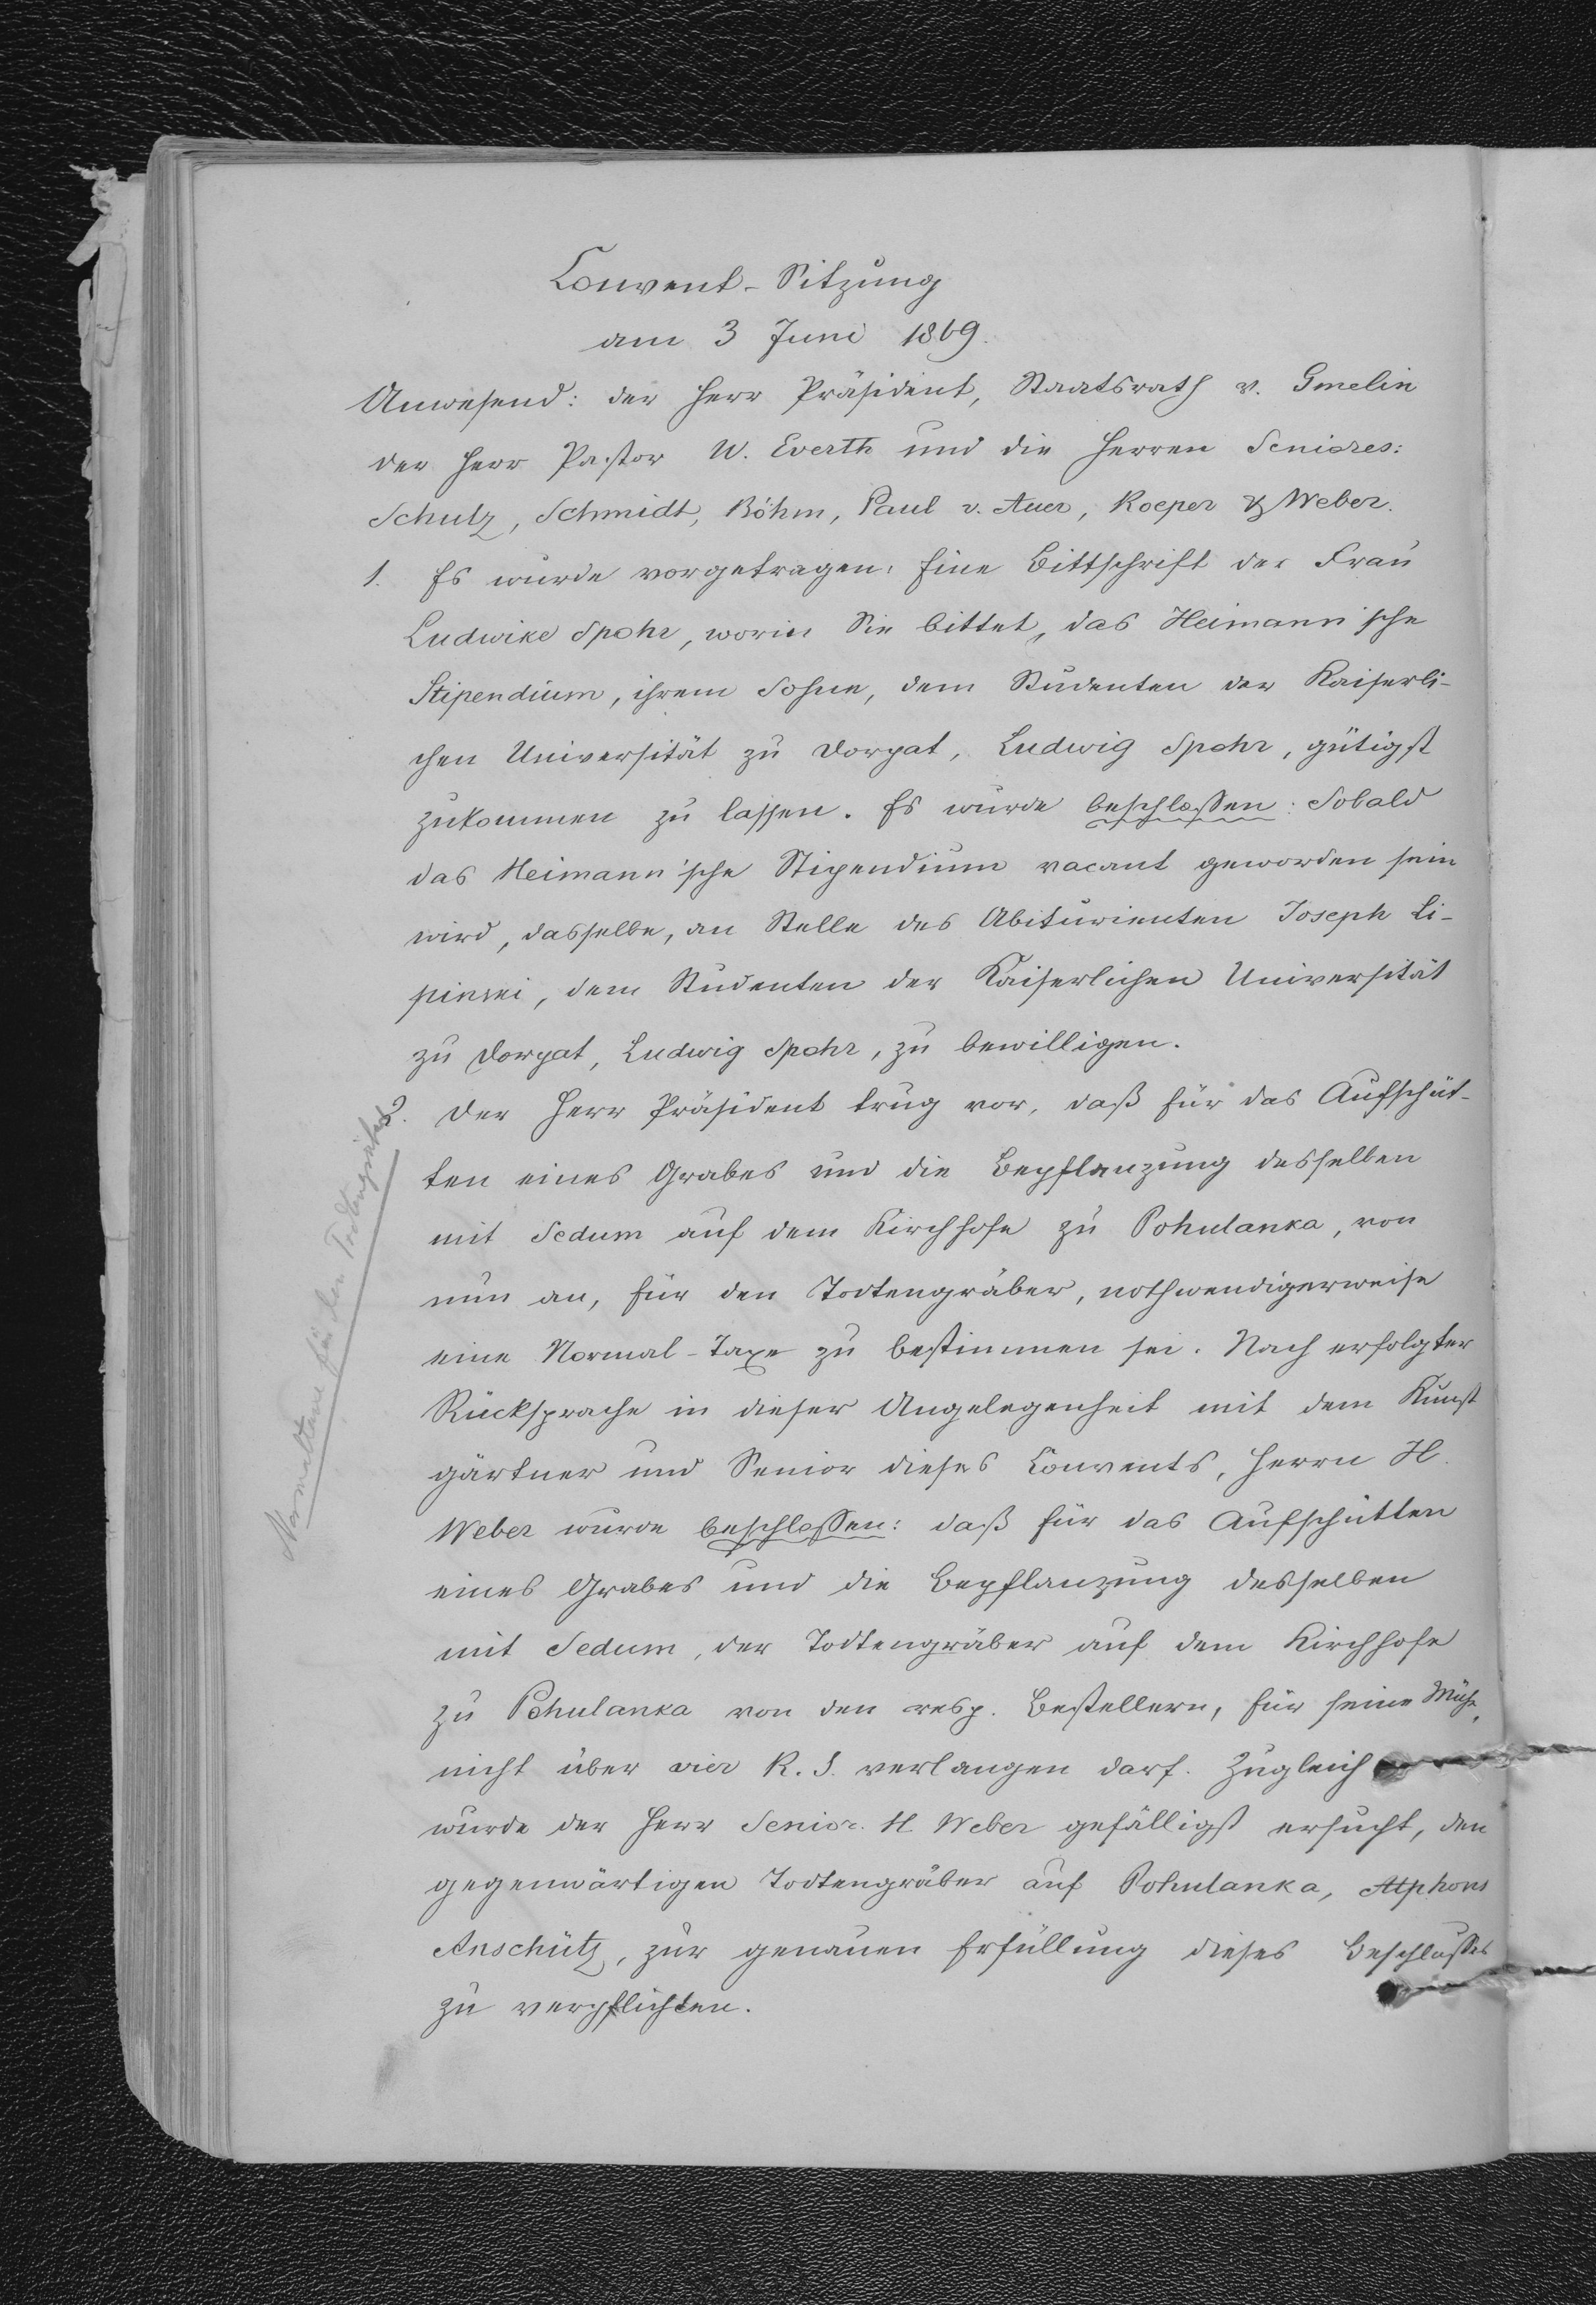 Convent-Sitzung
am 3 Juni 1869.
Anwesend: der Herr Präsident, Staatsrath v. Gmelin
der Herr Pastor W. Everth und die Herren Seniores:
Schulz, Schmidt, Böhm, Paul v. Auer, Roeper & Weber.
1. Es wurde vorgetragen: Eine Bittschrift der Frau
Ludwike Spohr, worin Sie bittet, das Heimann'sche
Stipendium, ihrem Sohne, dem Studenten der Kaiserli-
chen Universität zu Dorpat, Ludwig Spohr, gütigst
zukommen zu lassen. Es wurde beschlossen: Sobald
das Heimann'sche Stipendium vacant geworden sein
wird, dasselbe, an Stelle des Abiturienten Joseph Li-
pinski, dem Studenten der Kaiserlichen Universität
zu Dorpat, Ludwig Spohr, zu bewilligen.
2. Der Herr Präsident trug vor, daß für das Aufschüt-
ten eines Grabes und die Bepflanzung desselben
mit Sedum auf dem Kirchhofe zu Pohulanka, von
nun an, für den Todtengräber, nothwendigerweise
eine Normal-Taxe zu bestimmen sei. Nach erfolgter
Rücksprache in dieser Angelegenheit mit dem Kunst
gärtner und Senior dieses Convents, Herrn H.
Weber wurde beschlossen: daß für das Aufschütten
eines Grabes und die Bepflanzung desselben
mit Sedum, der Todtengräber auf dem Kirchhofe
zu Pohulanka von den resp. Bestellern, für seine Mühe,
nicht über vier R. S. verlangen darf. Zugleich
wurde der Herr Senior H. Weber gefälligst ersucht, den
gegenwärtigen Todtengräber auf Pohulanka, Alphons
Anschütz, zur genauen Erfüllung dieses Beschlusses
zu verpflichten.
Normaltaxe für den Todtengräber